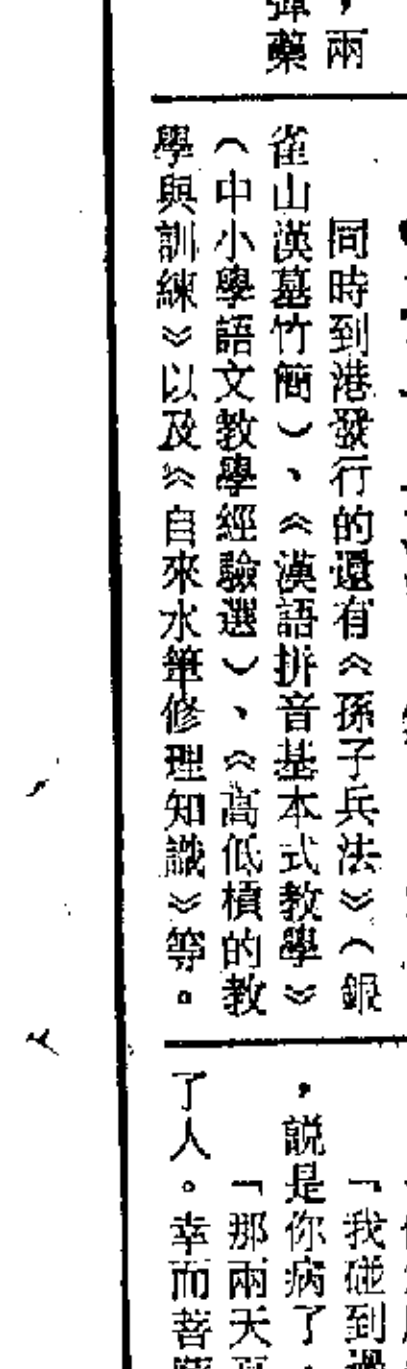 ，兩
彈藥
同時到港發行的還有《孫子兵法》（銀
雀山漢墓竹簡）、《漢語拼音基本式教學》
（中小學語文教學經驗選）、《高低槓的教
學與訓練》以及《自來水筆修理知識》等。
「我碰到過
，説是你病了，
「那兩天
了人。幸而菩